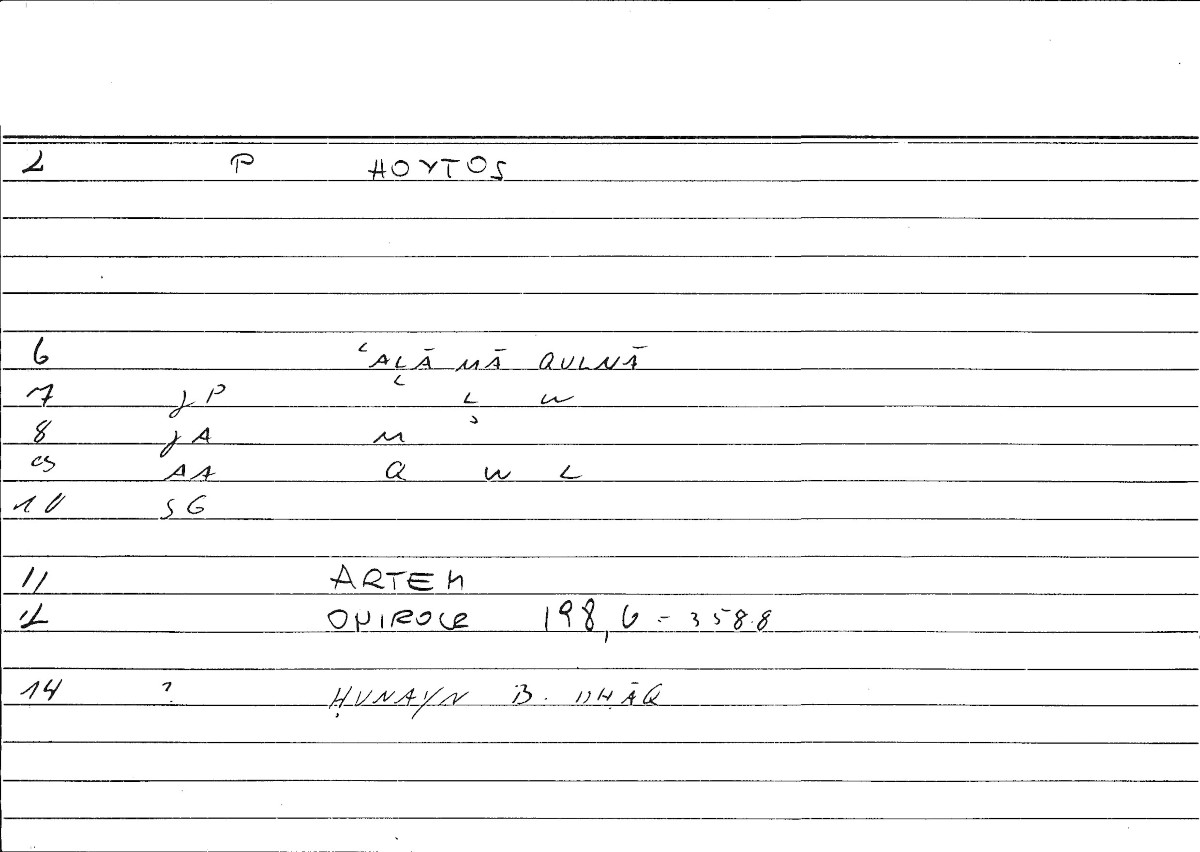 2 P HOYTOS
6 ʿALĀ MĀ QULNĀ
7 JP ʿ L W
8 JA M ʾ
9 AA Q W L
10 SG
11 ARTEM
12 ONIROCR 198,6 = 358.8
14 ? ḤUNAYN B. ISḤĀQ